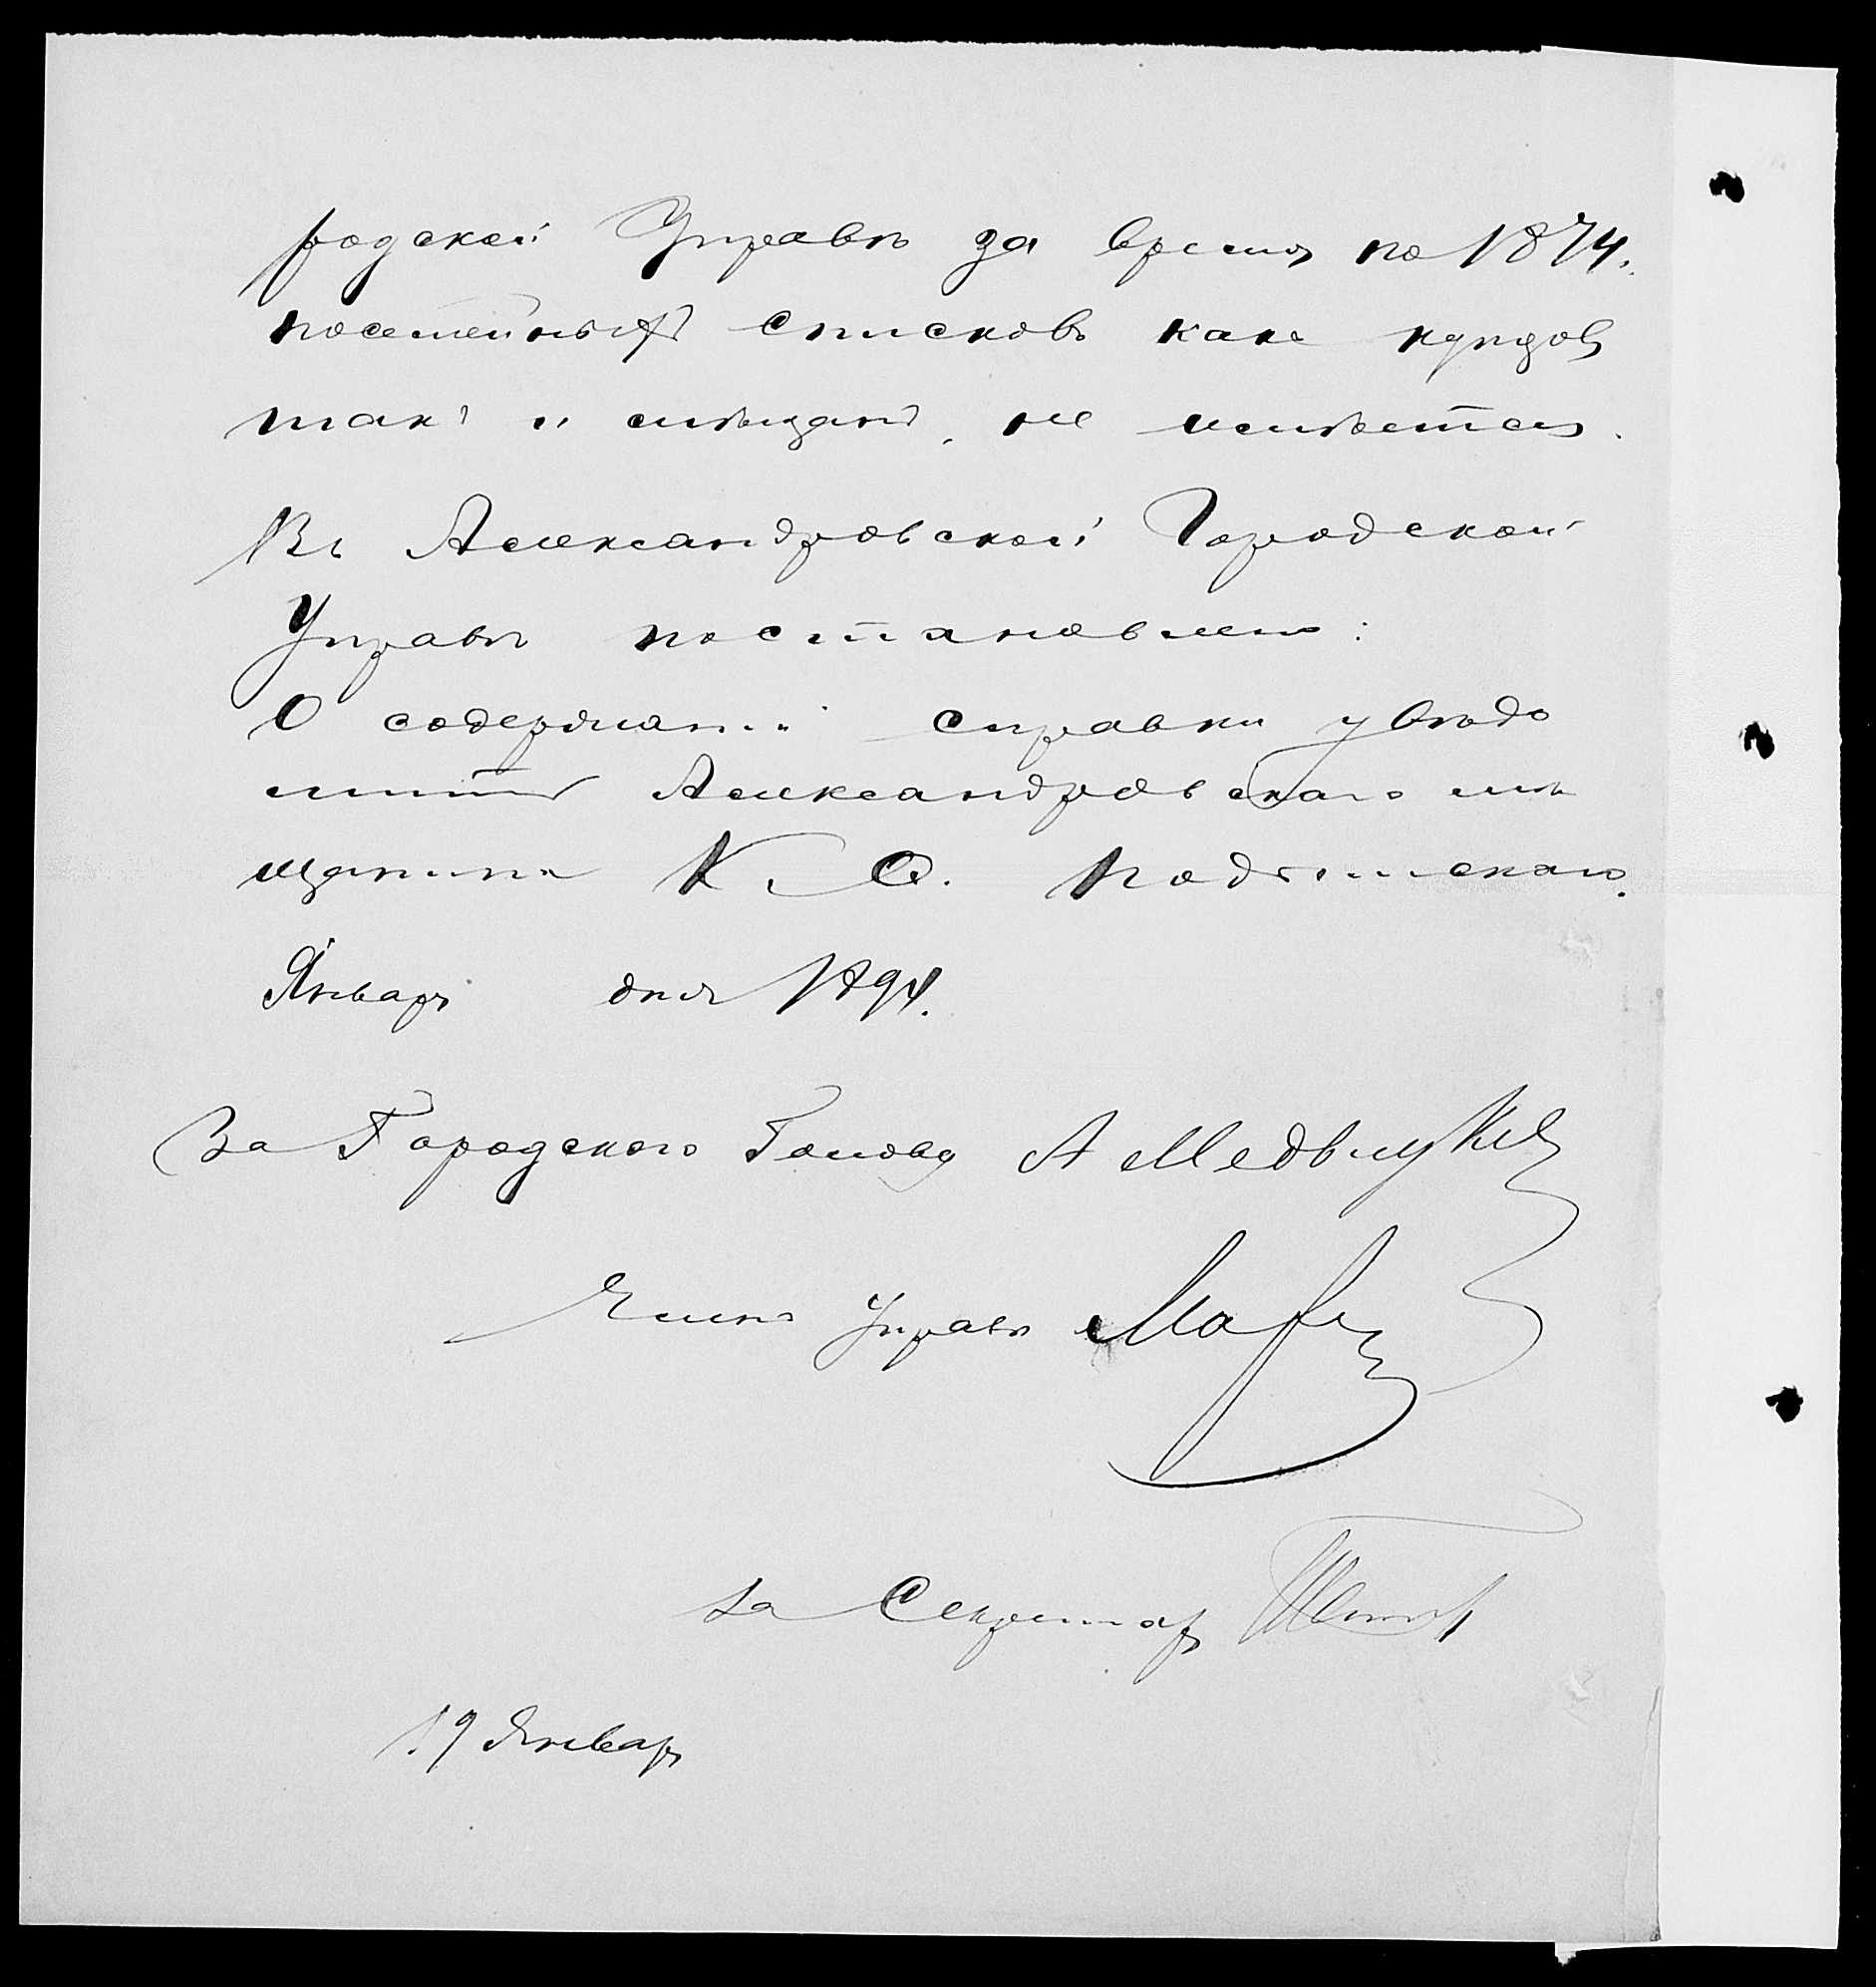 родской Управѣ за время по 1874.
посемейныхъ списковъ какъ купцовъ
такъ и мѣщанъ, не имѣется.
Въ Александровской Городской
Управѣ постановлено:
О содержанiи справки увѣдо
мить Александровскаго мѣ
щанина К. О.
Января дня 1894.
За Городского Голову А
Членъ Управы
За Секретаря
19 Января